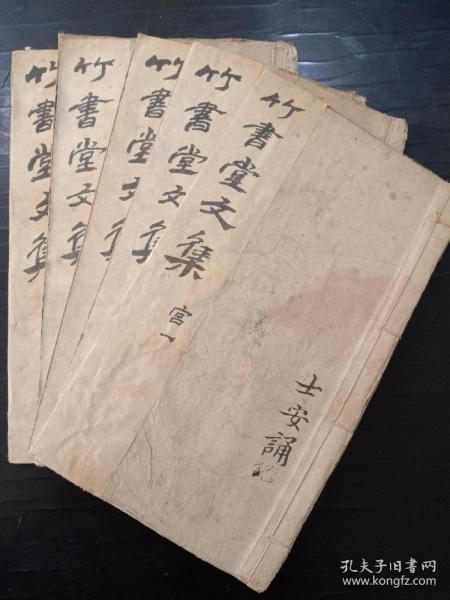 竹書堂文集
竹書堂文集
竹書堂文集
竹書堂文集
竹書堂文集
宫一
士安誦記
孔夫子旧书网
www.kongfz.com